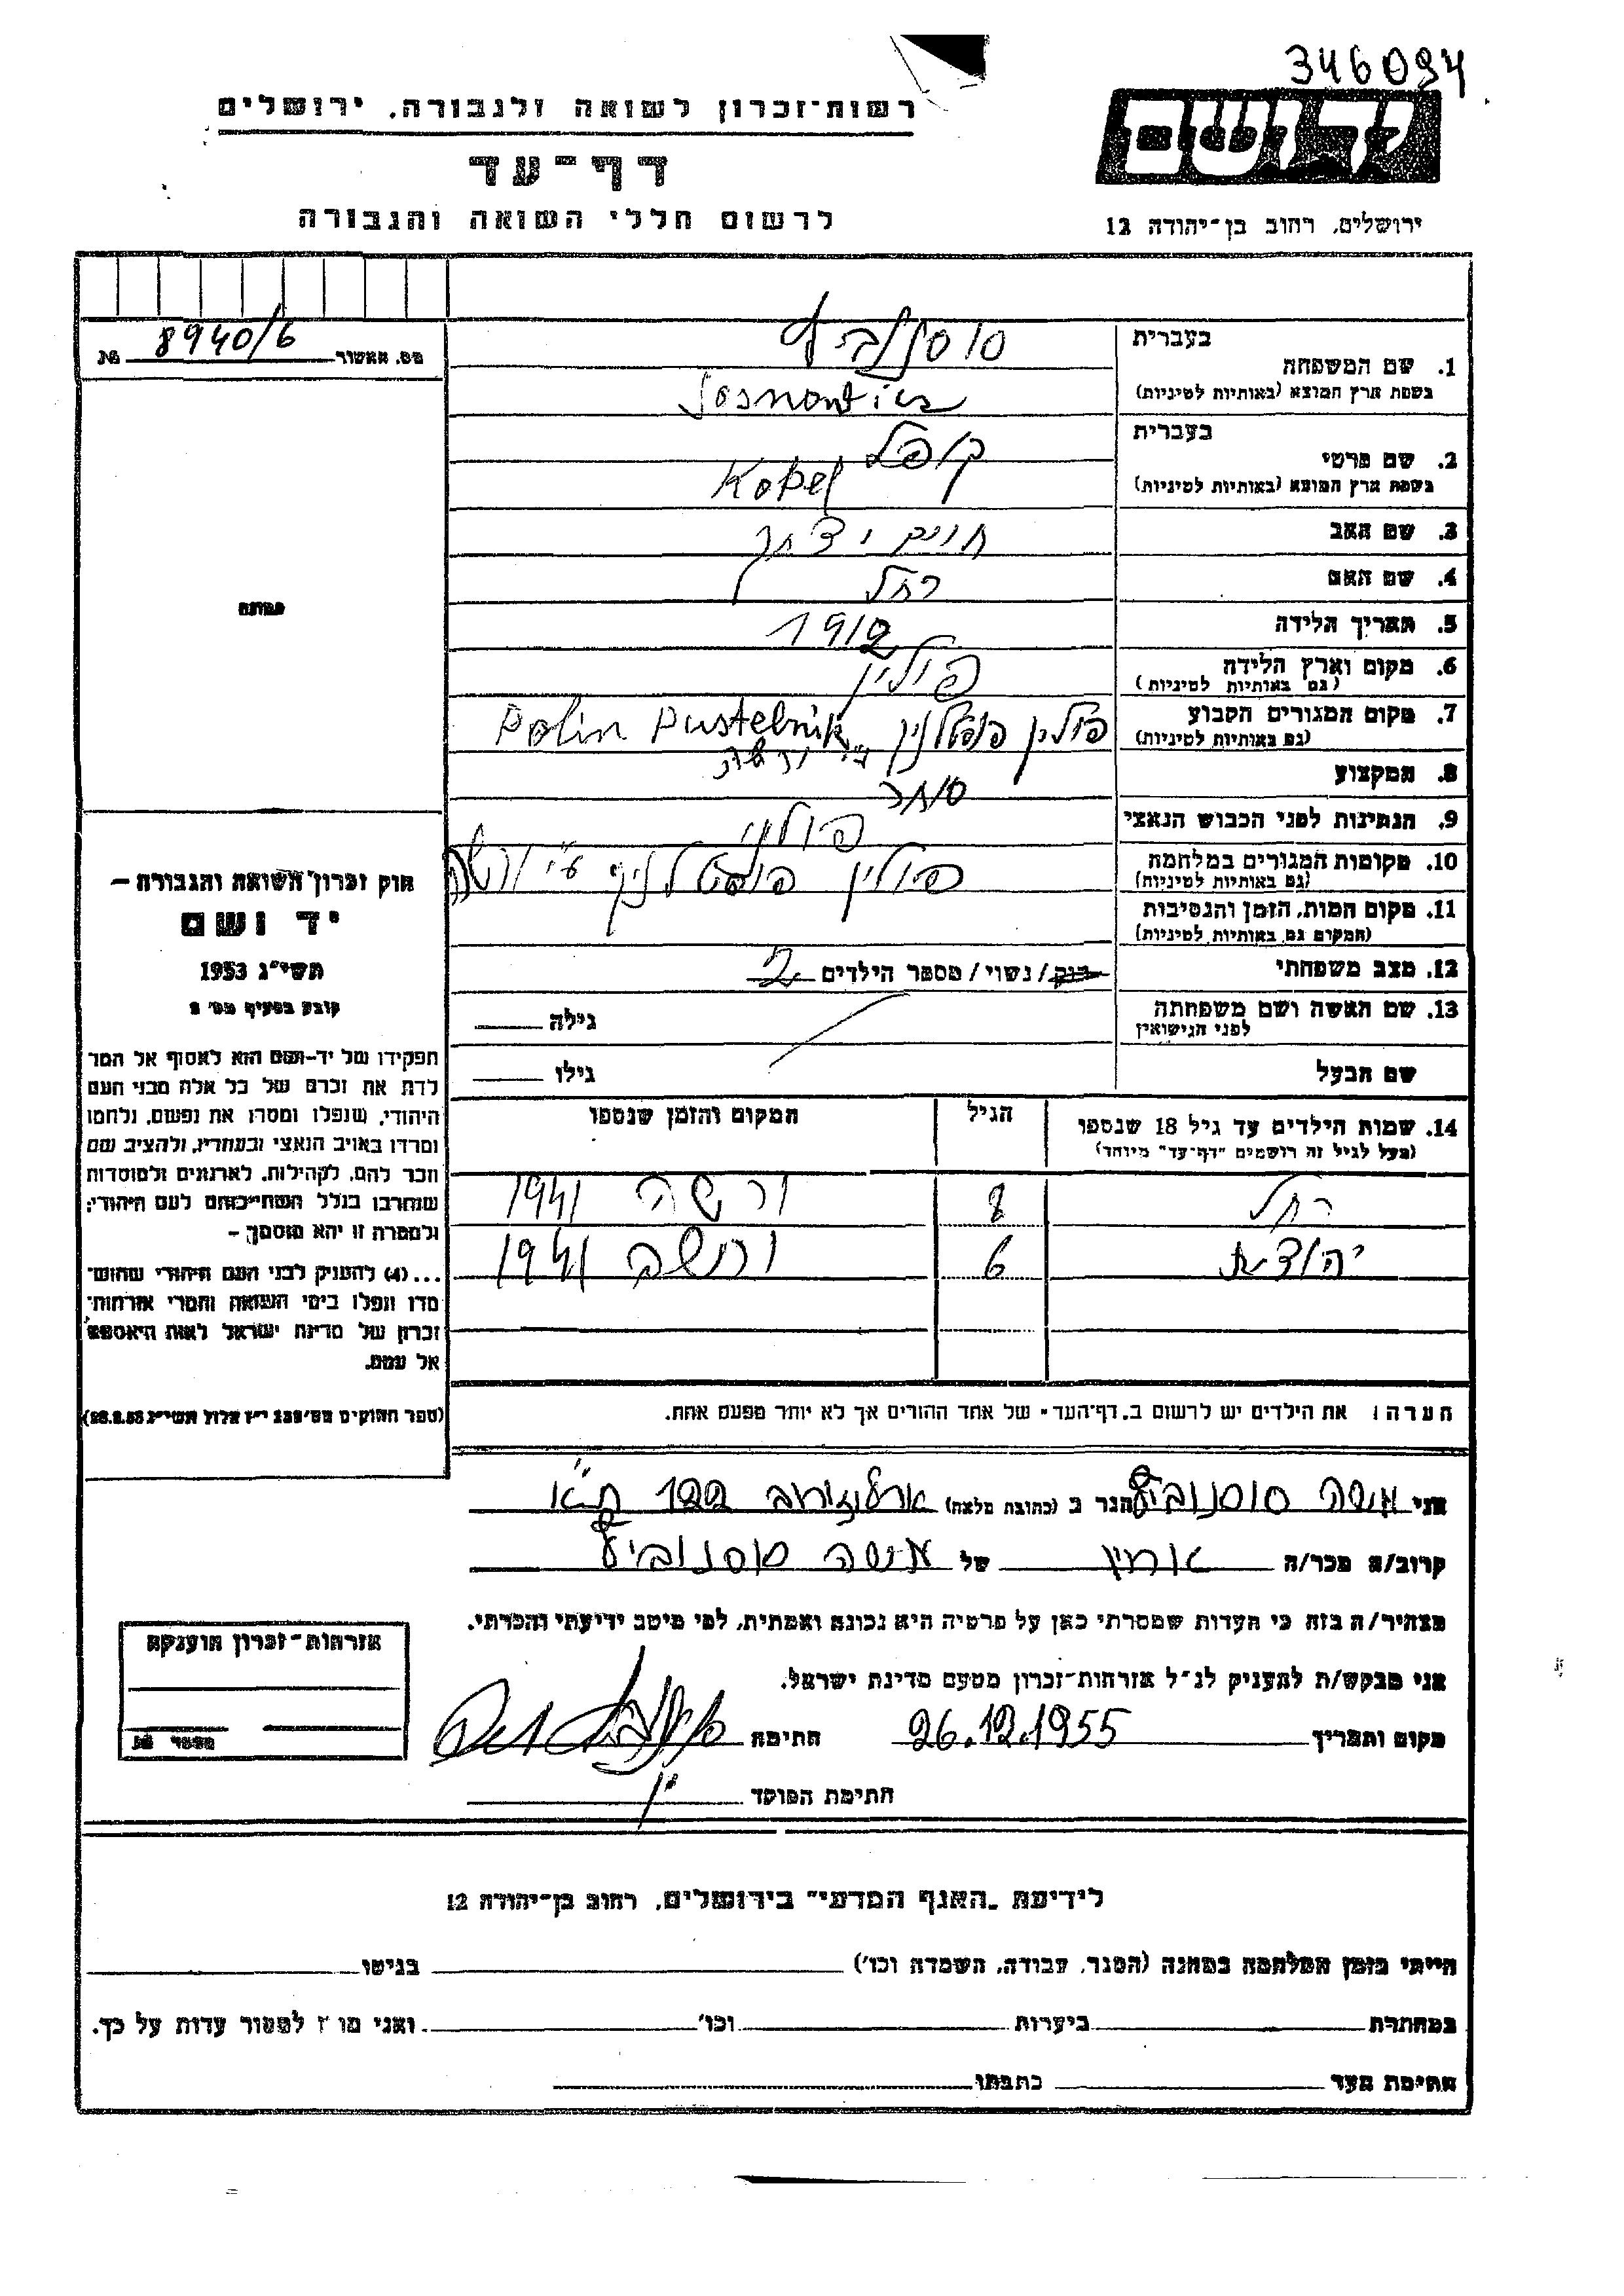 346094
רשות־זכרון לשואה ולגבורה, ירושלים
יד ושם
דף־עד
לרשום חללי השואה והגבורה
ירושלים, רחוב בן־יהודה 12
מס. מאשור 8940/6 №
בעברית
1. שם המשפחה
סוסנוביץ
בשפת ארץ המוצא (באותיות לטיניות)
בעברית
2. שם פרטי קופל
בשפת ארץ המוצא (באותיות לטיניות) Kopel
3. שם האב חיים יצחק
4. שם האם רחל
5. תאריך הלידה 1912
6. מקום וארץ הלידה פולין
(גם באותיות לטיניות)
7. מקום המגורים הקבוע פולין Polin Pustelnik
(גם באותיות לטיניות) ע״י ורשה
8. המקצוע סוחר
9. הנתינות לפני הכבוש הנאצי פולני
10. מקומות המגורים במלחמה פולין פוסטלניק ע״י ורשה
(גם באותיות לטיניות)
11. מקום המות, הזמן והנסיבות
(המקום גם באותיות לטיניות)
12. מצב משפחתי רוק / נשוי / מספר הילדים 2
13. שם האשה ושם משפחתה
לפני הנישואין
גילה
שם הבעל גילו
14. שמות הילדים עד גיל 18 שנספו
(מעל לגיל זה רושמים "דף־עד" מיוחד)
הגיל
המקום והזמן שנספו
רחל 8 ורשה 1941
יהודית 6 ורשה 1941
הערה: את הילדים יש לרשום ב„דף־העד" של אחד ההורים אך לא יותר מפעם אחת.
תמונה
חוק זכרון השואה והגבורה —
יד ושם
תשי"ג 1953
קובע בסעיף מס׳ 2
תפקידו של יד־ושם הוא לאסוף אל המו־
לדת את זכרם של כל אלה מבני העם
היהודי, שנפלו ומסרו את נפשם, נלחמו
ומרדו באויב הנאצי ובעוזריו, ולהציב שם
וזכר להם, לקהילות, לארגונים ולמוסדות
שנחרבו בגלל השתייכותם לעם היהודי;
ולמטרה זו יהא מוסמך —
...(4) להעניק לבני העם היהודי שהוש־
מדו ונפלו בימי השואה והמרי אזרחות־
זכרון של מדינת ישראל לאות היאספם
אל עמם.
(ספר החוקים מס׳ 132 י״ז אלול תשי״ג 28.8.53)
אני משה סוסנוביץ הגר ב (כתובת מלאה) ארלוזורוב 122 ת״א
קרוב/ה מכר/ה של משה סוסנוביץ
מצהיר/ה בזה כי העדות שמסרתי כאן על פרטיה היא נכונה ואמתית, לפי מיטב ידיעתי והכרתי.
אני מבקש/ת להעניק לנ״ל אזרחות־זכרון מטעם מדינת ישראל.
מקום ותאריך 26.12.1955 חתימה
חתימת הפוקד
אזרחות־זכרון הוענקה
מספר №
לידיעת „האגף המדעי" בירושלים, רחוב בן־יהודה 12
הייתי בזמן המלחמה במחנה (הסגר, עבודה, השמדה וכו׳) בגיטו
במחתרת ביערות וכו׳ ואני מוכן למסור עדות על כך.
חתימת העד כתבתו